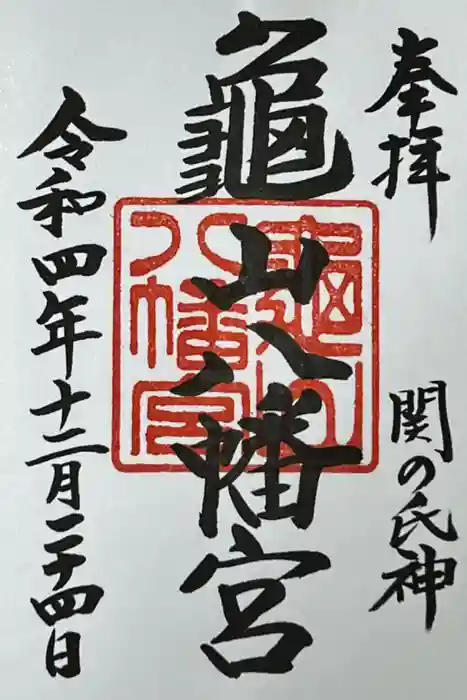 奉拝
関の氏神
龜山八幡宮
龜山八幡宮
令和四年十二月二十四日